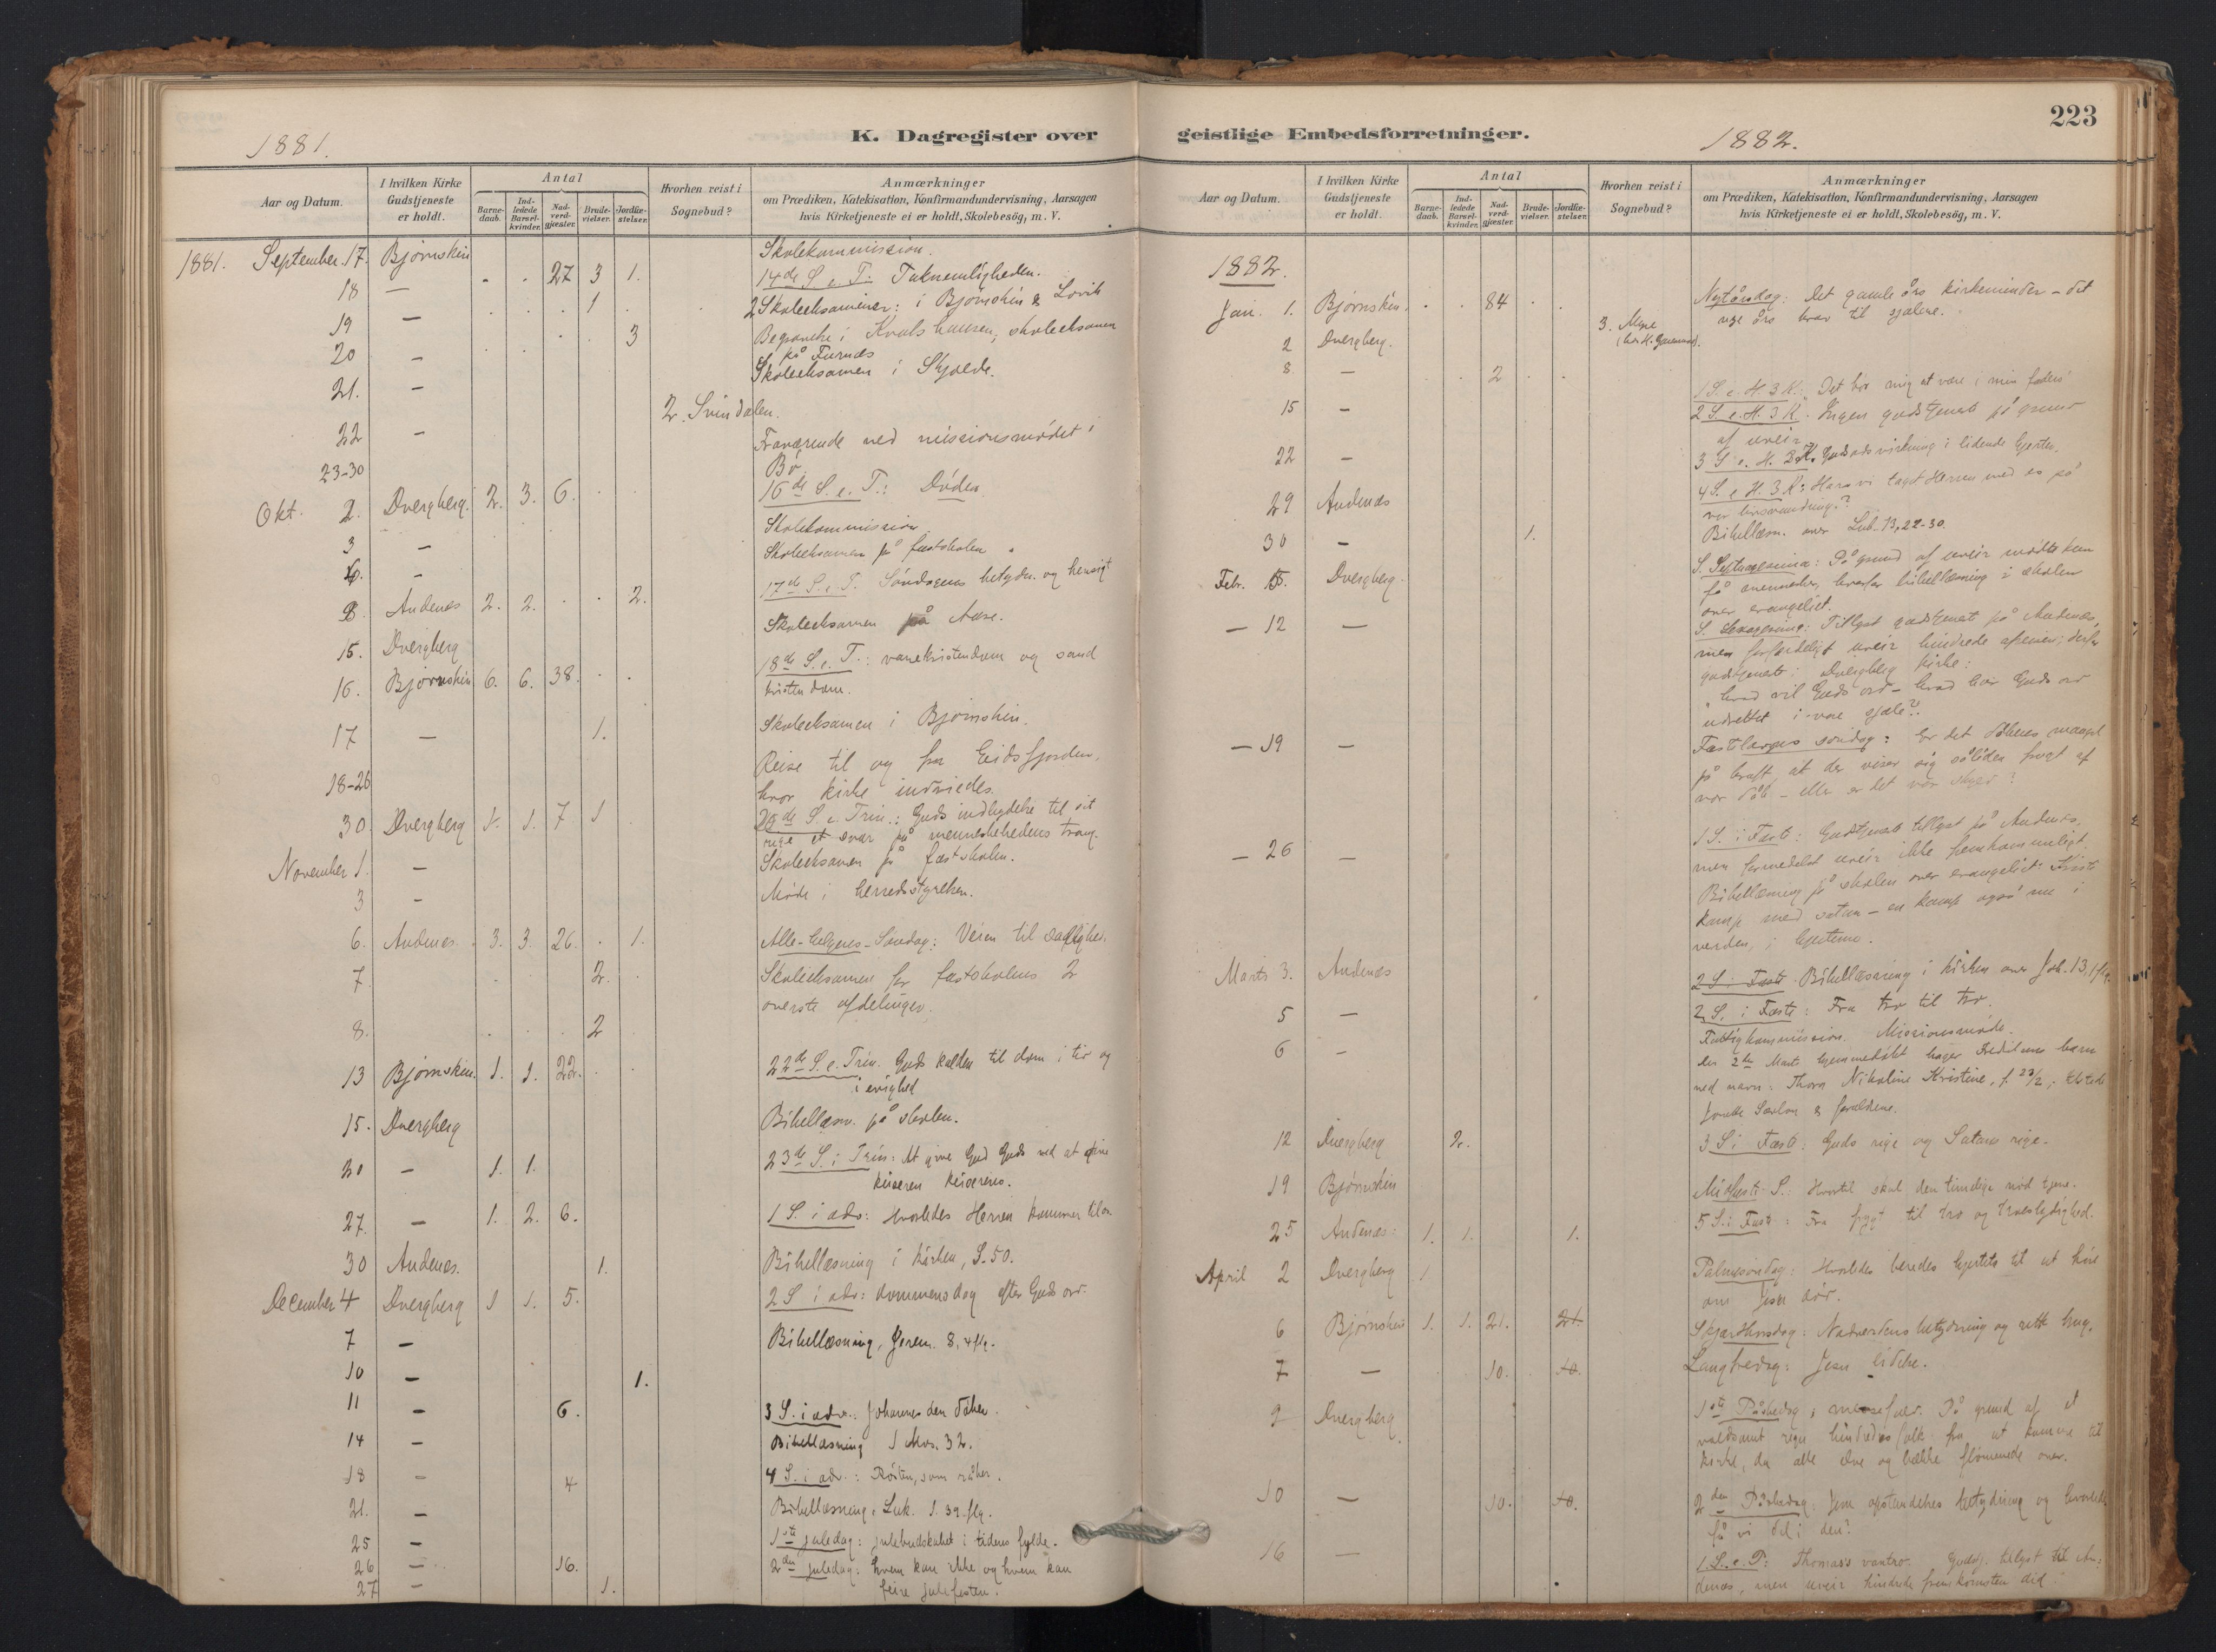 1881.
K. Dagregister over
Aar og Datum.
I hvilken Kirke Gudstjeneste er holdt.
Antal
Barnedaab.
Indledede Barselkvinder.
Nadverdgjæster.
Brudevielser.
Jordfæstelser.
Hvorhen reist i Sognebud?
Anmærkninger
om Prædiken, Katekisation, Konfirmandundervisning, Aarsagen
hvis Kirketjeneste ei er holdt, Skolebesög, m. V.
1881. September 17. Bjørnskin Skolekommission.
18 — . . 27 3 1. 14de S. e. T. Taknemligheden.
19 — . . . 1 . 2 Skoleeksaminer: i Bjørnskin & Lovik
20 — . . . . 3 Begravelse i Kvalshausen, skoleeksamen
på Furnæs
21. — Skoleeksamen i Skjolde.
22 — 2. Svindalen.
23-30 Fraværende ved missionsmødet i
Bø.
Okt. 2. Dvergberg. 2. 3. 6. . . 16de S. e. T.: Døden.
3 — Skolekommission
6. — Skoleeksamen på fastskolen.
8. Andenes 2. 2. . . 2. 17de S. e. T. Søndagens betydn. og hensigt
15. Dvergberg Skoleeksamen på Aase.
16. Bjørnskin 6. 6. 38. . . 18de S. e. T.: vanekristendom og sand
kristendom.
17 — 1. Skoleeksamen i Bjørnskin.
18-26 Reise til og fra Eidsfjorden,
hvor kirke indviedes.
30 Dvergberg 1. 1. 7 1 20de S. e. Trin.: Guds indbydelse til sit
rige et svar på menneskehedens trang.
November 1. — Skoleeksamen på fastskolen.
3 — Møde i herredsstyrelsen.
6. Andenes. 3. 3. 26. . 1. Alle-helgenes-Søndag: Veien til salighed.
7 . . . 2. . Skoleeksamen for fastskolens 2
øverste afdelinger.
8. . . . 2
13 Bjørnskin. 1. 1. 22. . . 22de S. e. Trin. Guds kalden til dom i tid og
i evighed
15. Dvergberg Bibellæsn. på skolen.
20 — 1. 1. 23de S. i Trin: At give Gud Guds ved at give
keiseren keiserens.
27. — 1. 2. 6. 1 S. i adv: Hvorledes Herren kommer til os
30 Andenes. 1. Bibellæsning i kirken, S. 50.
December 4 Dvergberg 1 1. 5. 2 S i adv: dommensdag efter Guds ord.
7 — Bibellæsning, Jerem. 8, 4 flg.
10 — 1.
11 — 6. 3 S. i adv.: Johannes den døber.
14 — Bibellæsning 1 Mos. 32.
18 — 4 4 S. i adv.: Røsten, som råber.
21. — Bibellæsning, Luk. 1. 39. flg.
25 — 1ste juledag: julebudskabet i tidens fylde.
26 — 16. 2den juledag: hvem kan ikke og hvem kan
feire julefesten.
27 — 1.
223
geistlige Embedsforretninger.
1882.
Aar og Datum.
I hvilken Kirke Gudstjeneste er holdt.
Antal
Barnedaab.
Indledede Barselkvinder.
Nadverdgjæster.
Brudevielser.
Jordfæstelser.
Hvorhen reist i Sognebud?
Anmærkninger
om Prædiken, Katekisation, Konfirmandundervisning, Aarsagen
hvis Kirketjeneste ei er holdt, Skolebesög, m. V.
1882.
Jan. 1. Bjørnskin. . . 84 . . Nytårsdag: Det gamle års kirkeminder – det
nye års krav til sjælene.
2 Dvergberg. 3.
8 — . . 2 . . 1 S. e. H. 3 K.: Det bør mig at være i min faders
15 — 2 S. e. H. 3 K. Ingen gudstjeneste på grund
af uveir
22 — 3 S. e. H. 3 K. Guds ords virkning i lidende hjerter.
29 Andenæs 4 S. e H. 3 K: Have vi taget Herren med os på
vor livsvandring?
30 — 1. Bibellæsn. over Luk. 13, 22-30.
Febr. 5. Dvergberg. S. Septuagesima: På grund af uveir mødte kun
få mennesker, hvorfor bibellæsning i skolen
over evangeliet.
— 12 — S. Sexagesima: Tillyst gudstjeneste på Andenæs,
men forfærdeligt uveir hindrede afreisen; derfor
gudstjeneste i Dvergberg kirke:
hvad vil Guds ord – hvad har Guds ord
udrettet i vore sjæle?
— 19 — Fastelavns søndag: Er det dåbens mangel
på kraft, at der viser sig således frugt af
vor dåb – eller er det vor skyld?
— 26 — 1 S. i Faste: Gudstjeneste tillyst på Andenæs,
men formedelst uveir ikke fremkommeligt.
Bibellæsning på skolen over evangeliet: Kristi
kamp med satan – en kamp også nu i
verden, i hjerterne.
Marts 3. Andenæs 2 S. i Faste. Bibellæsning i kirken over Joh. 13, 1 flg.
5 — 2 S. i Faste: Fra tro til tro.
6 — Fattigkommission. Missionsmøde.
Den 2de Marts hjemmedøbt barn
ved navn: Thora Nikoline Kristine, f. 23/2,
& forældrene.
12 Dvergberg 2. 3 S i Faste: Guds rige og Satans rige.
19 Bjørnskin Midfaste S.: Hvortil skal den timelige nød tjene.
25 Andenæs: 1. 1. 1. 5 S. i Faste: Fra frygt til tro og troeslydighed.
April 2 Dvergberg 1 Palmesøndag: Hvorledes beredes hjertet til at høre
om Jesu død.
6 Bjørnskin 1. 1. 21. 21. Skjærthorsdag: Nadverdens betydning og rette brug.
7 — 10. 10. Langfredag: Jesu lidelse.
9 Dvergberg 1ste Påskedag: messefald. På grund af et
voldsomt regn hindredes folk fra at komme til
kirke, da alle elve og bække flømmede over.
10 — 10. 10. 2den Påskedag: Jesu opstandelses betydning og hvorledes
få vi del i den?
16 — 1. S. e. P: Thomas's vantro. Gudstj. tillyst til An=
denæs, men uveir hindrede fremkomsten did.